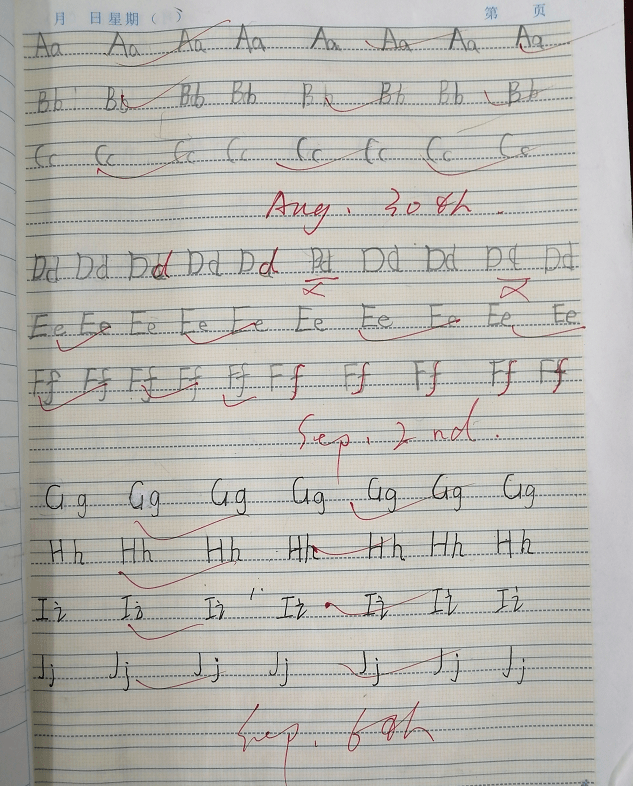 月 日 星期 ( ) 第 页
Aa Aa Aa Aa Aa Aa Aa Aa
Bb Bb Bb Bb Bb Bb Bb Bb
Cc Cc Cc Cc Cc Cc Cc Cc
Aug. 30th.
Dd Dd Dd Dd Dd Dd Dd Dd Dd Dd
Ee Ee Ee Ee Ee Ee Ee Ee Ee Ee
Ff Ff Ff Ff Ff Ff Ff Ff Ff Ff
Sep. 2nd.
Gg Gg Gg Gg Gg Gg Gg
Hh Hh Hh Hh Hh Hh Hh
Ii Ii Ii Ii Ii Ii Ii
Jj Jj Jj Jj Jj Jj Jj
Sep. 6th